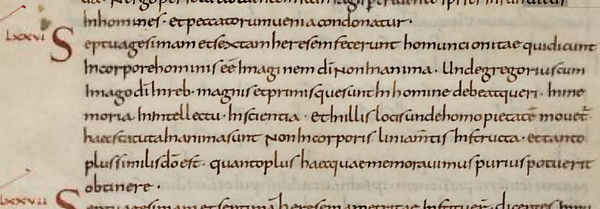 inhomines · et peccatorum uenia condonatur ·
lxxvi Septuagesimam et sextam heresem fecerunt homuncionitae qui dicunt
in corpore hominis eē imaginem dī non in anima · Unde gregorius cum
imago dī in reb· magnis et primis quę sunt in homine debeat queri · in me
moria · in intellectu · in scientia · et in illis locis unde homo pietatē mouet·
haec statuta in anima sunt non in corporis liniam̄tis instructa · et tanto
plus similis dō est · quanto plus haec quae memorauimus purius potuerit
obtinere ·
lxxvii Septuagesimam et septimā heresem